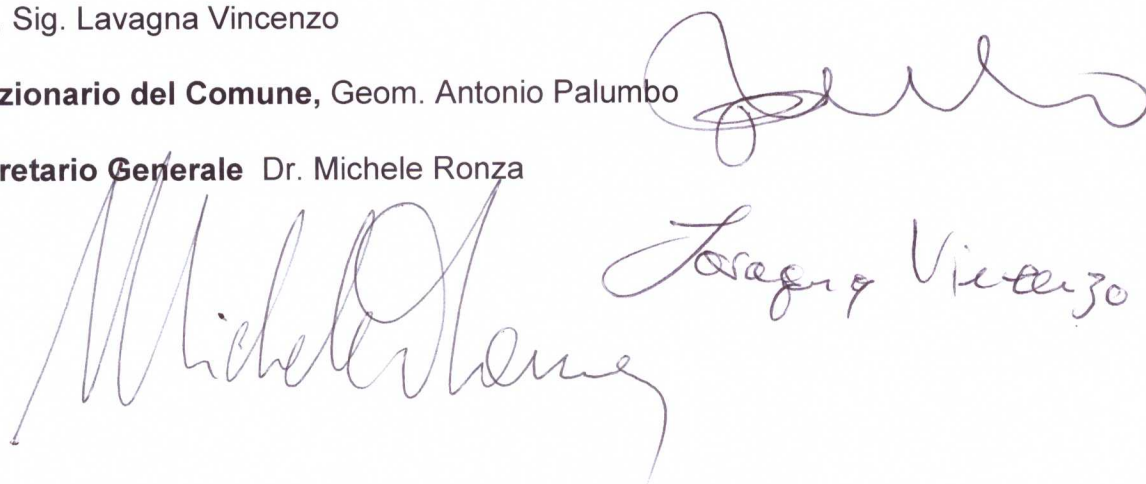 Sig. Lavagna Vincenzo
zionario del Comune, Geom. Antonio Palumbo
retario Generale Dr. Michele Ronza
Lavagna Vincenzo
Michele Ronza